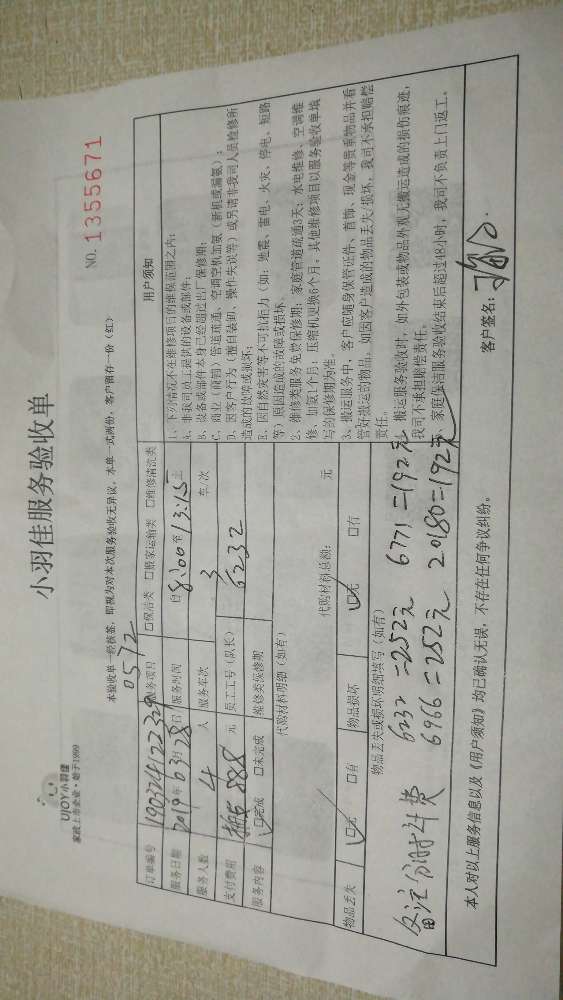 UJOY小羽佳
家政上市企业·始于1999
小羽佳服务验收单
NO. 1355671
本验收单一经签字，即视为对本次服务验收无异议，本单一式两份，客户留存一份（红）
0572
订单编号 服务项目 □保洁类 □搬家运输类 □维修清洗类
服务日期 2019年03月28日 服务时间 自8:00至13:15止
服务人数 4 人 服务车次 3 车/次
支付费用 888 元 员工工号（队长） 6232
服务内容 □完成 □未完成 维修类保修期
代购材料明细（如有）
代购材料总额： 元
物品丢失 □无 □有 物品损坏 □无 □有
物品丢失或损坏明细填写（如有）
备注 分时计费 6232=252元 6771=192元
6966=252元 20180=192元
用户须知
1、下列情况不在维修项目的维保范围之内：
A、非我司员工提供的设备或部件；
B、设备或部件本身已经超过出厂保修期；
C、商业（商销）管道疏通、空调空机加氨（新机或漏氨）；
D、因客户行为（擅自装卸、操作失误等）或另请非我司人员检修所
造成的故障或损坏；
E、因自然灾害等不可抗拒力（如：地震、雷电、火灾、停电、短路
等）原因造成的故障或损坏。
2、维修类服务免费保修期：家庭管道疏通3天；水电维修、空调维
修、加氨1个月；压缩机更换6个月。其他维修项目以服务验收单填
写的保修期为准。
3、搬运服务中，客户应随身保管证件、首饰、现金等贵重物品并看
管好搬运的物品，如因客户造成的物品丢失/损坏，我司不承担赔偿
责任。
搬运服务验收时，如外包装或物品外观无搬运造成的损伤痕迹，
我司不承担赔偿责任。
家庭保洁服务验收结束后超过48小时，我司不负责上门返工。
本人对以上服务信息以及《用户须知》均已确认无误，不存在任何争议纠纷。
客户签名：